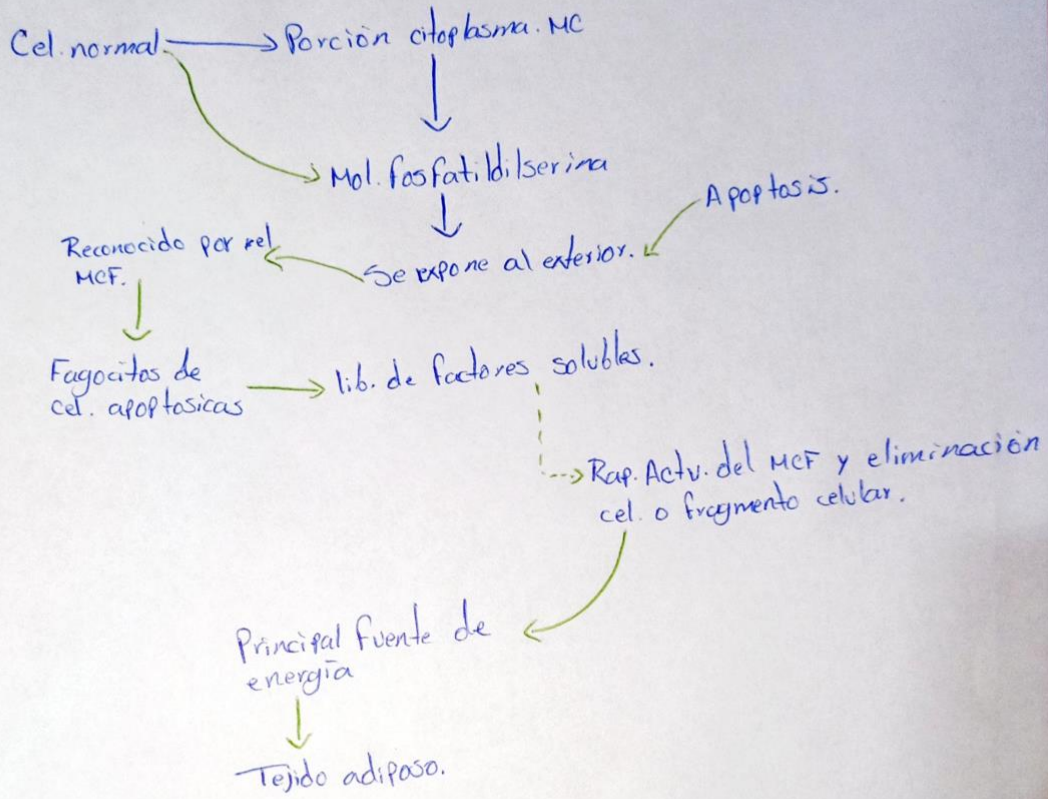 Cel. normal. Porción citoplasma. MC
Mol. fosfatildilserina
Apoptosis.
Reconocido por rel
MCF.
Se expone al exterior.
Fagocitos de
cel. apoptosicas
lib. de factores solubles.
Rap. Actv. del MCF y eliminación
cel. o fragmento celular.
Principal fuente de
energía
Tejido adiposo.